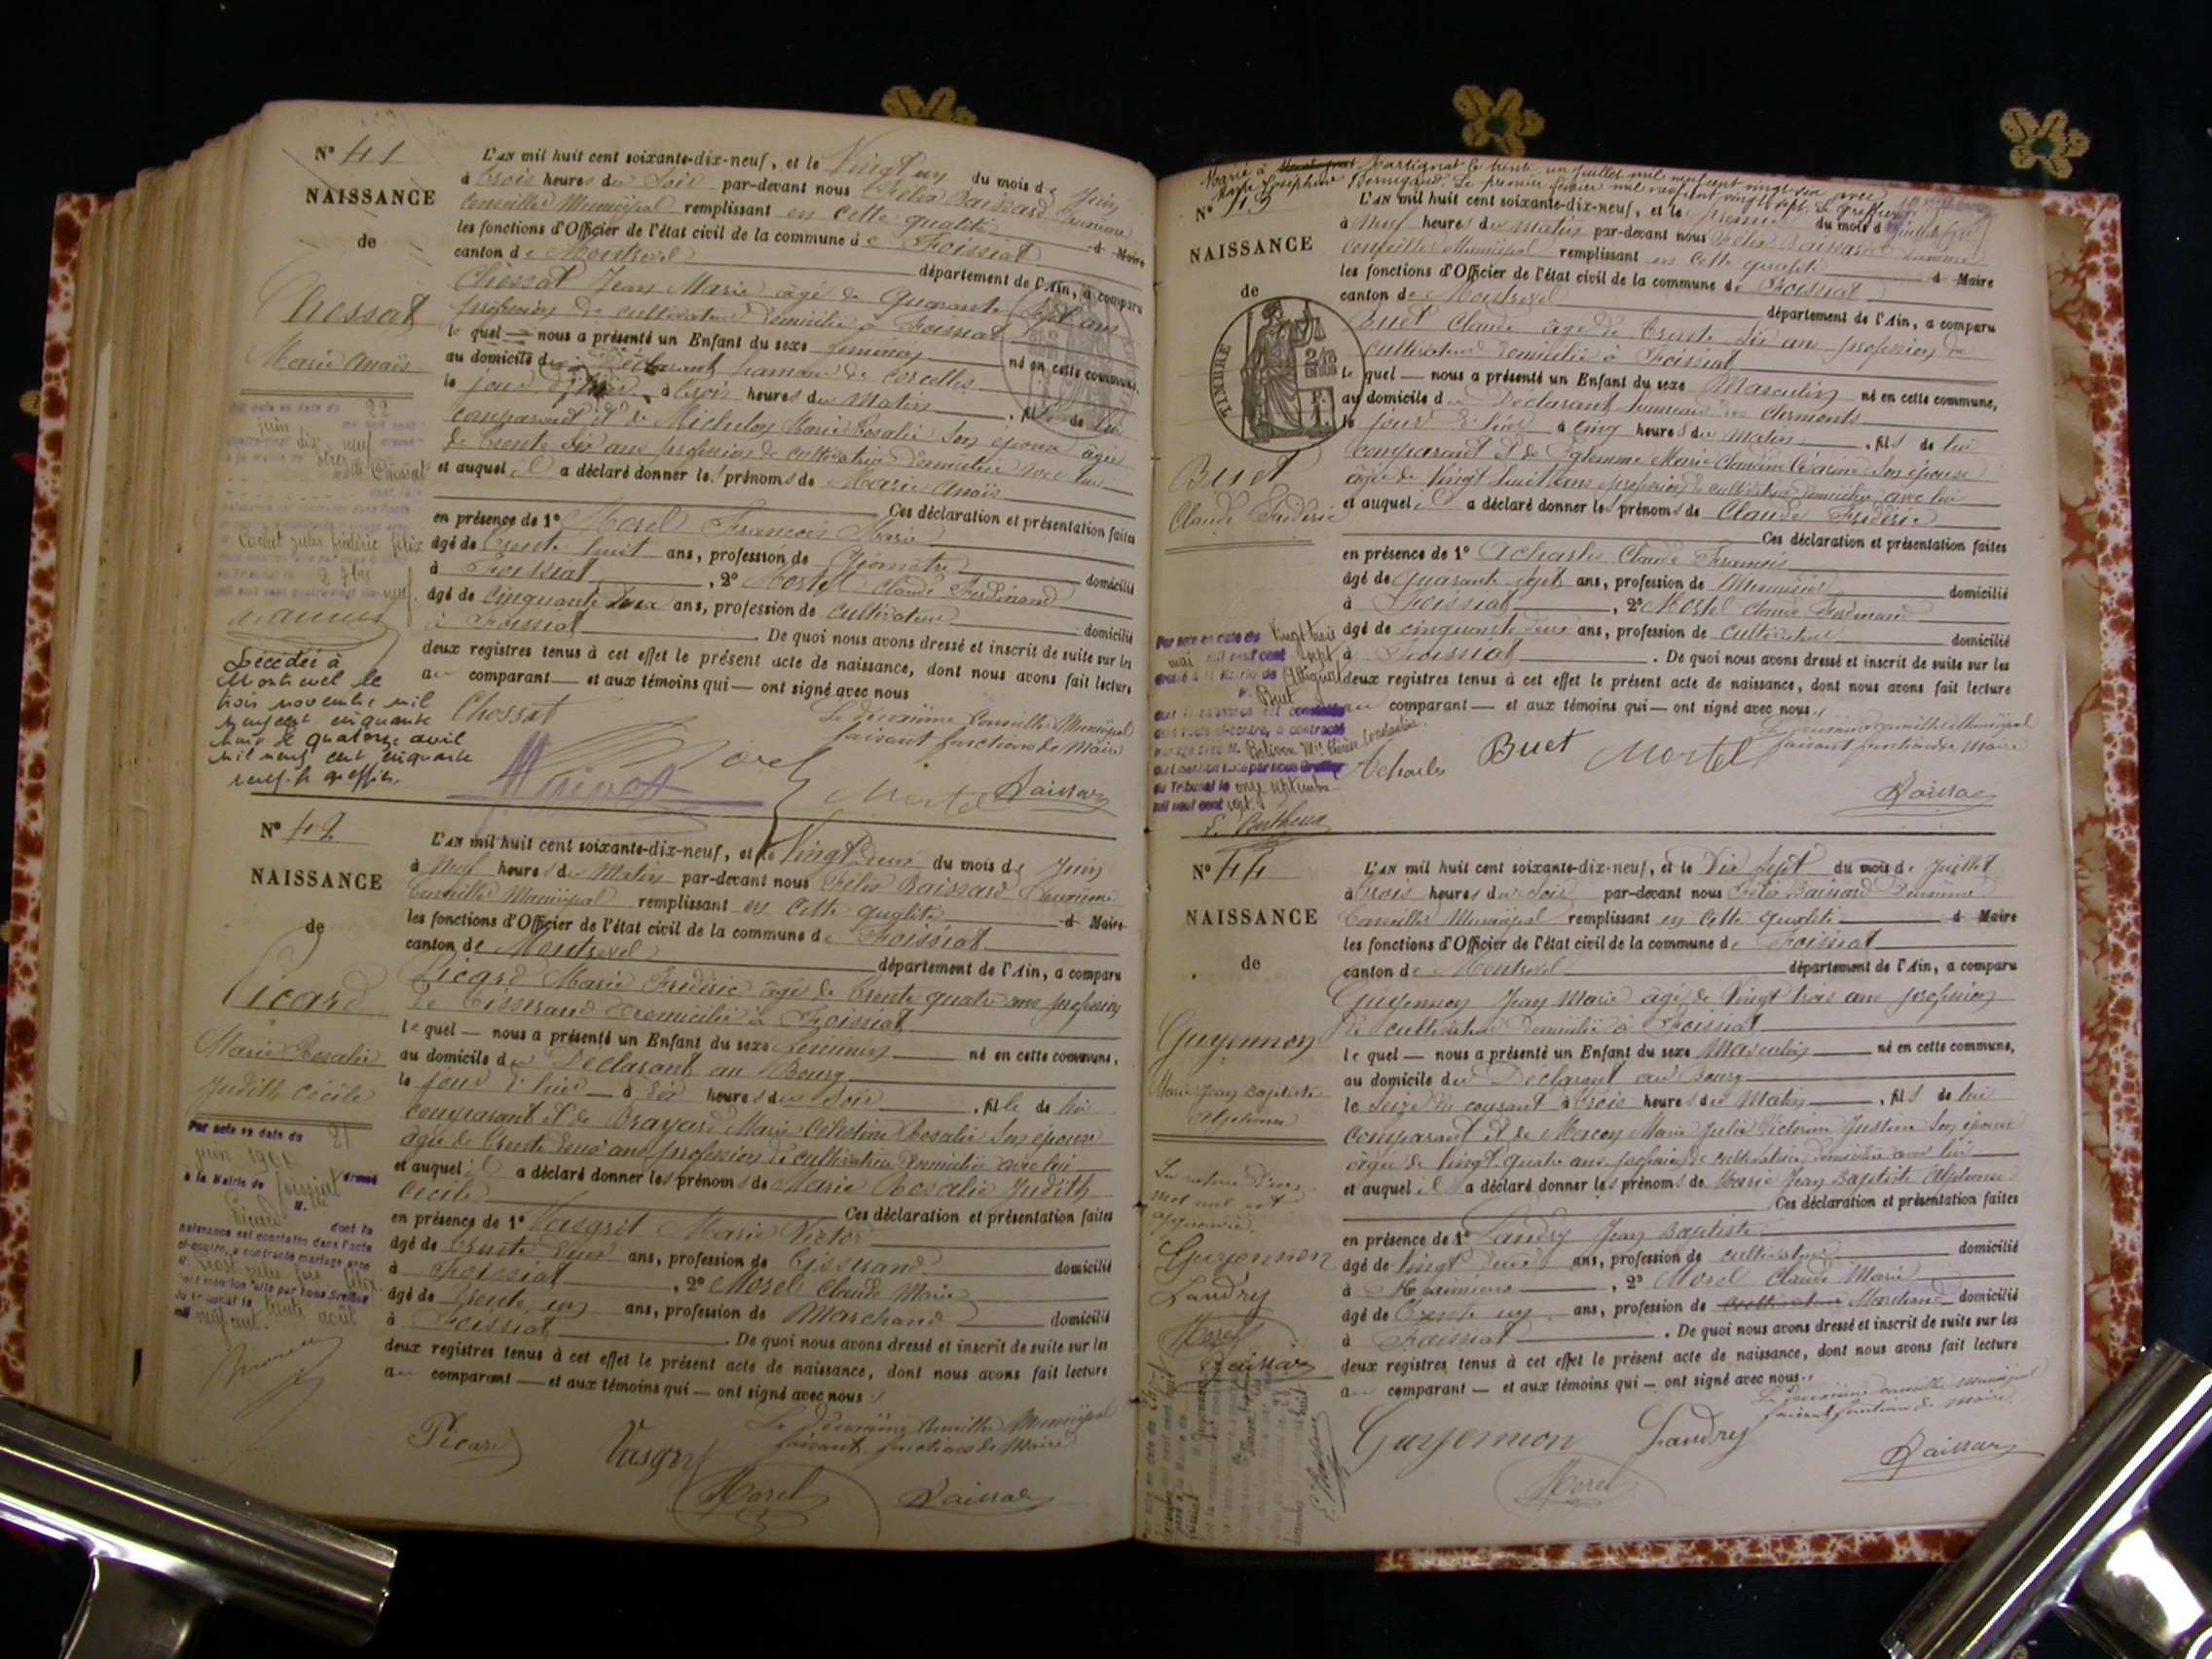 N° 41
NAISSANCE
de
Chossat
Marie Anaïs
Par acte en date du 22
juin
dix-neuf
Cachet Jules frédéric félix
Décédée à
Montrevel le
trois novembre mil
neuf cent cinquante
huit le quatorze avril
mil neuf cent cinquante
neuf. le greffier.
L'AN mil huit cent soixante-dix-neuf, et le Vingt un du mois de Juin
à trois heures du Soir par-devant nous Félix Baissard Deuxième
Conseiller Municipal remplissant en cette qualité d Maire
les fonctions d'Officier de l'état civil de la commune de Foissiat
canton de Montrevel département de l'Ain, a comparu
Chossat Jean Marie âgé de Quarante Sept ans
profession de cultivateur domicilié à Foissiat
le quel nous a présenté un Enfant du sexe féminin né en cette commune,
au domicile du Déclarant hameau de Corcelles
le jour d'hier à trois heures du Matin , fille de lui
comparant et de Michelon Marie Rosalie Son épouse âgée
de trente Six ans profession de cultivatrice domiciliée avec lui
et auquel il a déclaré donner les prénoms de Marie Anaïs
Ces déclaration et présentation faites
en présence de 1° Morel François Marie
âgé de trente huit ans, profession de Géomètre domicilié
à Foissiat , 2° Mortel Claude Ferdinand
âgé de Cinquante deux ans, profession de Cultivateur domicilié
à Foissiat . De quoi nous avons dressé et inscrit de suite sur les
deux registres tenus à cet effet le présent acte de naissance, dont nous avons fait lecture
au comparant et aux témoins qui ont signé avec nous
Le deuxième Conseiller Municipal
faisant fonctions de Maire
Chossat Morel Mortel Baissard
N° 42
NAISSANCE
de
Picard
Marie Rosalie
Judith Cécile
Par acte en date du 21
juin 1906 dressé
à la Mairie de Foissiat
M. elle
Picard dont la
naissance est constatée dans l'acte
ci-contre, a contracté mariage avec
Dont mention faite par nous Greffier
du tribunal le trente août
mil neuf cent.
L'AN mil huit cent soixante-dix-neuf, et le Vingt Deux du mois de Juin
à Neuf heures du Matin par-devant nous Félix Baissard Deuxième
Conseiller Municipal remplissant en cette qualité d Maire
les fonctions d'Officier de l'état civil de la commune de Foissiat
canton de Montrevel département de l'Ain, a comparu
Picard Marie Frédéric âgé de trente quatre ans profession
de Tisserand domicilié à Foissiat
le quel nous a présenté un Enfant du sexe féminin né en cette commune,
au domicile du Déclarant au Bourg
le jour d'hier à dix heures du Soir , fille de lui
comparant et de Brayard Marie Célestine Rosalie Son épouse
âgée de trente deux ans profession de cultivatrice domiciliée avec lui
et auquel il a déclaré donner les prénoms de Marie Rosalie Judith
Cécile Ces déclaration et présentation faites
en présence de 1° Vasgrit Marie Victor
âgé de trente deux ans, profession de Tisserand domicilié
à Foissiat , 2° Morel Claude Marie
âgé de trente un ans, profession de Marchand domicilié
à Foissiat . De quoi nous avons dressé et inscrit de suite sur les
deux registres tenus à cet effet le présent acte de naissance, dont nous avons fait lecture
au comparant et aux témoins qui ont signé avec nous
Le deuxième Conseiller Municipal
faisant fonctions de Maire
Picard Vasgrit Morel Baissard
Marié à Martignat le trente un juillet mil neuf cent vingt six avec
Marie Joséphine Bernigaud. Le premier février mil neuf cent vingt sept. Le Greffier
N° 43
NAISSANCE
de
TIMBRE
Buet
Claude Frédéric
Par acte en date du Vingt trois
mai mil neuf cent sept
dressé à la Mairie de Attignat
M. Buet
dont la naissance est constatée
dans l'acte ci-contre, a contracté
mariage avec M.
dont mention faite par nous Greffier
du Tribunal le onze septembre
mil neuf cent sept.
L'AN mil huit cent soixante-dix-neuf, et le premier du mois de Juillet
à Neuf heures du Matin par-devant nous Félix Baissard Deuxième
Conseiller Municipal remplissant en cette qualité d Maire
les fonctions d'Officier de l'état civil de la commune de Foissiat
canton de Montrevel département de l'Ain, a comparu
Buet Claude âgé de trente Six ans profession de
cultivateur domicilié à Foissiat
le quel nous a présenté un Enfant du sexe Masculin né en cette commune,
au domicile du Déclarant hameau des Clermonts
le jour d'hier à cinq heures du Matin , fils de lui
comparant et de Eglemme Marie Claudine Césarine Son épouse
âgée de Vingt huit ans profession de cultivatrice domiciliée avec lui
et auquel il a déclaré donner les prénoms de Claude Frédéric
Ces déclaration et présentation faites
en présence de 1° Acharles Claude François
âgé de Quarante Sept ans, profession de Menuisier domicilié
à Foissiat , 2° Mortel Claude Ferdinand
âgé de cinquante deux ans, profession de Cultivateur domicilié
à Foissiat . De quoi nous avons dressé et inscrit de suite sur les
deux registres tenus à cet effet le présent acte de naissance, dont nous avons fait lecture
au comparant et aux témoins qui ont signé avec nous.
Le Deuxième Conseiller Municipal
faisant fonction de Maire
Acharles Buet Mortel Baissard
N° 44
NAISSANCE
de
Guyennon
Marie Jean Baptiste
Alphonse
La rature d'un
mot nul est
approuvée.
Guyennon
Landry
Morel
Baissard
L'AN mil huit cent soixante-dix-neuf, et le Dix Sept du mois de Juillet
à trois heures du Soir par-devant nous Félix Baissard Deuxième
Conseiller Municipal remplissant en cette qualité d Maire
les fonctions d'Officier de l'état civil de la commune de Foissiat
canton de Montrevel département de l'Ain, a comparu
Guyennon Jean Marie âgé de Vingt trois ans profession
de cultivateur domicilié à Foissiat
le quel nous a présenté un Enfant du sexe Masculin né en cette commune,
au domicile du Déclarant au Bourg
le Seize du courant à trois heures du Matin , fils de lui
comparant et de Macon Marie Julie Victorine Justine Son épouse
âgée de Vingt quatre ans profession de cultivatrice domiciliée avec lui
et auquel il a déclaré donner les prénoms de Marie Jean Baptiste Alphonse
Ces déclaration et présentation faites
en présence de 1° Landry Jean Baptiste
âgé de Vingt deux ans, profession de cultivateur domicilié
à , 2° Morel Claude Marie
âgé de Trente un ans, profession de cultivateur Marchand domicilié
à Foissiat . De quoi nous avons dressé et inscrit de suite sur les
deux registres tenus à cet effet le présent acte de naissance, dont nous avons fait lecture
au comparant et aux témoins qui ont signé avec nous.
Le Deuxième Conseiller Municipal
faisant fonction de Maire
Guyennon Landry Morel Baissard